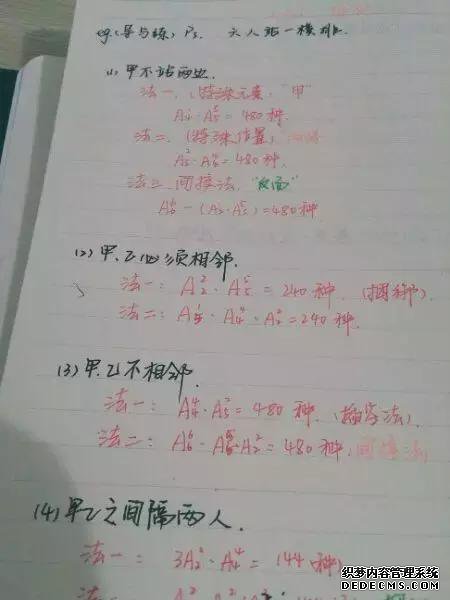 eg(导与练) P3. 六人站一横排.
(1) 甲不站两边.
法一、(特殊元素, "甲"
A₄¹·A₅⁵ = 480种.
法二、(特殊位置)
A₅²·A₄⁴ = 480种.
法三、间接法, "反面"
A₆⁶ - (A₂¹·A₅⁵) = 480种
(2) 甲、乙必须相邻.
法一: A₂²·A₅⁵ = 240种. (捆绑).
法二: A₅¹·A₄⁴·A₂² = 240种.
(3) 甲.乙不相邻.
法一: A₄⁴·A₅² = 480种. (插空法).
法二: A₆⁶ - A₅⁵·A₂² = 480种. 间接法
(4) 甲乙之间隔两人.
法一: 3A₂²·A₄⁴ = 144种
法二:
织梦内容管理系统
DEDECMS.COM